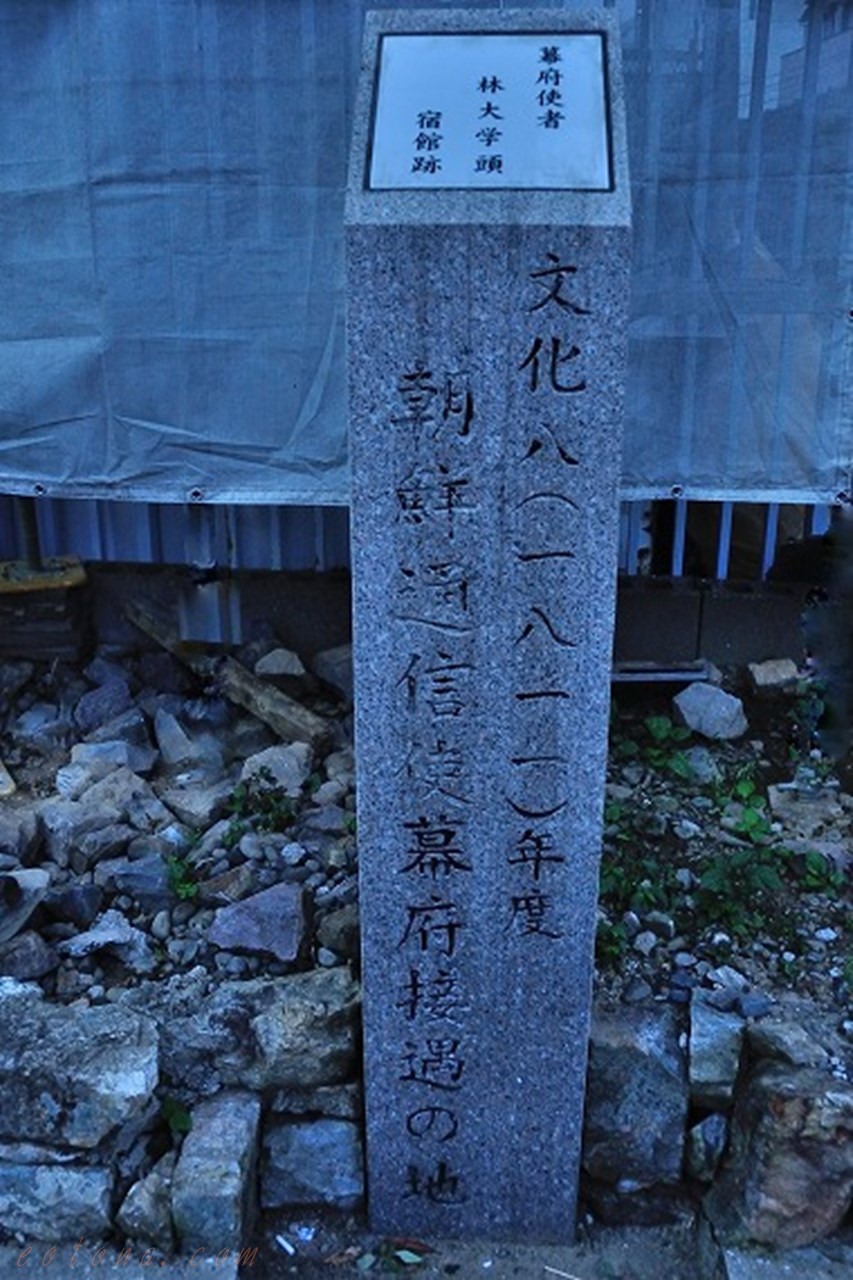 幕府使者
林大学頭
宿館跡
文化八(一八一一)年度
朝鮮通信使幕府接遇の地
eotona.com